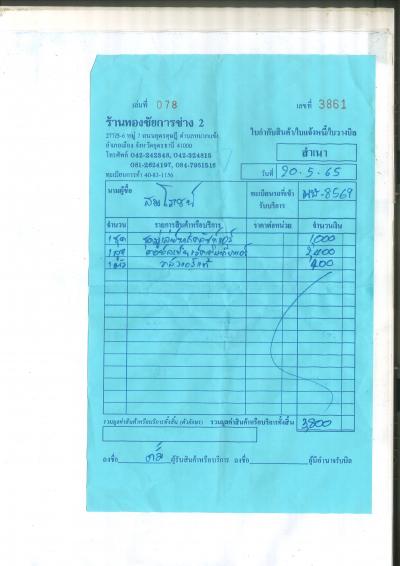 เล่มที่ 078
เลขที่ 3861
ร้านทองชัยการช่าง 2
277/5-6 หมู่ 7 ถนนอุดรดุษฎี ตำบลหมากแข้ง
อำเภอเมือง จังหวัดอุดรธานี 41000
โทรศัพท์ 042-242548, 042-324815
081-2624197, 084-7951516
ทะเบียนการค้า 40-83-1156
ใบกำกับสินค้า/ใบแจ้งหนี้/ใบวางบิล
สำเนา
วันที่ 20.5.65
นามผู้ซื้อ
ทะเบียนรถที่เข้า
รับบริการ
8569
จำนวน รายการสินค้าหรือบริการ ราคาต่อหน่วย จำนวนเงิน
1 ชุด 1,000
1 ชุด 2,400
1 ตัว 400
รวมมูลค่าสินค้าหรือบริการทั้งสิ้น (ตัวอักษร) รวมมูลค่าสินค้าหรือบริการทั้งสิ้น 3,800
ลงชื่อ ผู้รับสินค้าหรือบริการ ลงชื่อ ผู้มีอำนาจรับบิล